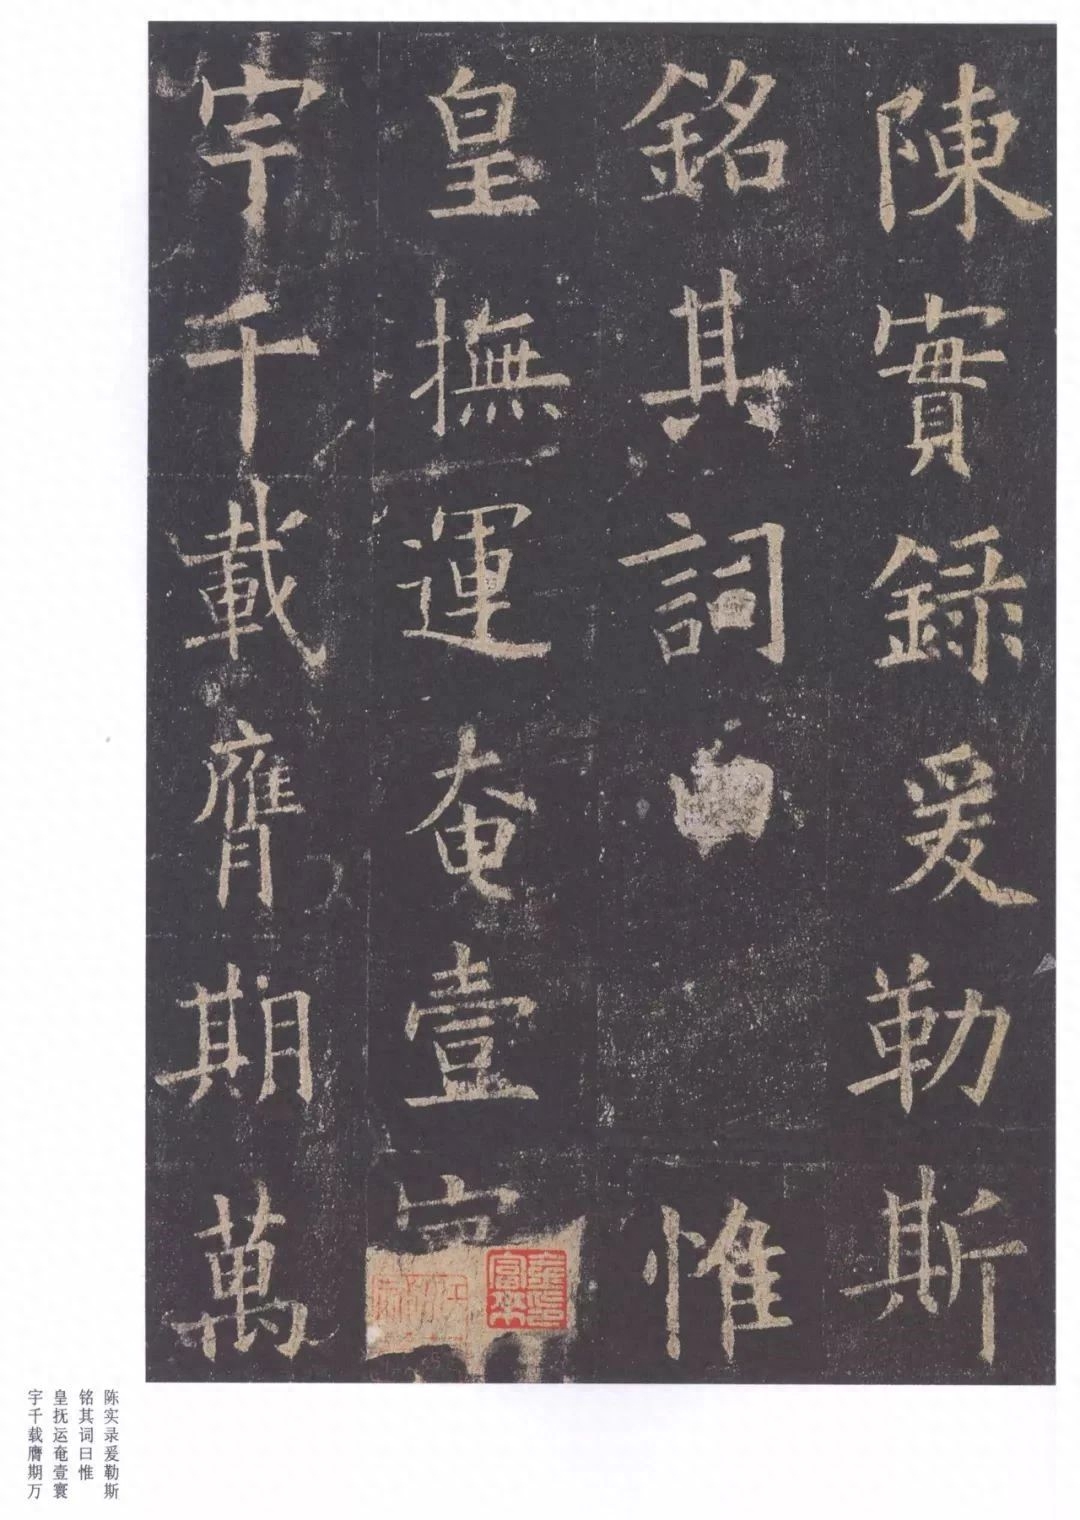 陳實錄爰勒斯
銘其詞曰惟
皇撫運奄壹寰
宇千載膺期萬
陈实录爰勒斯
铭其词曰惟
皇抚运奄壹寰
宇千载膺期万